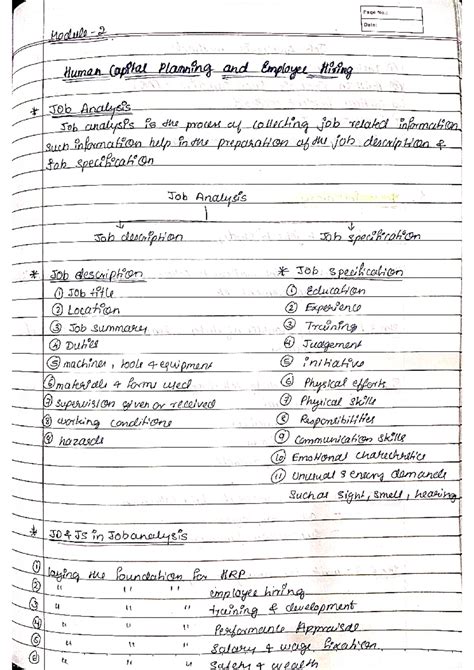 Page No.:
Date:
Module-2
Human Capital Planning and Employee Hiring
* Job Analysis
Job analysis is the process of collecting job related information
such information help in the preparation of the job description &
job specification
Job Analysis
Job description Job specification
* Job description
① Job title
② Location
③ Job summary
④ Duties
⑤ machines, tools & equipment
⑥ materials & forms used
⑦ supervision given or received
⑧ working conditions
⑨ hazards
* Job Specification
① Education
② Experience
③ Training
④ Judgement
⑤ initiative
⑥ Physical efforts
⑦ Physical skills
⑧ Responsibilities
⑨ Communication skills
⑩ Emotional charectristics
⑪ unusual sensory demands
Such as sight, smell, hearing
* JD & JS in Job analysis
① laying the foundation for HRP
② " " " employee hiring
③ " " " training & development
④ " " " Performance Appraisal
⑤ " " " Salary & wage fixation
⑥ " " " Safety & wealth